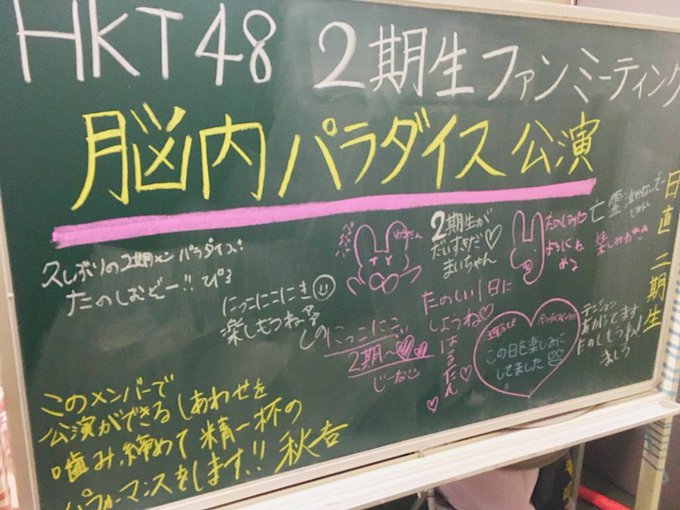 HKT48 2期生ファンミーティング
脳内パラダイス公演
日直 二期生
久しぶりの2期メン パラダイス!
たのしむぞー!! ぴる
にこにこにき
楽しもうねー
2期生が
だいすきだ♡
まいちゃん
にこにこ
2期〜
じーな
たのしい1日に
しようね♡
はるたん♡
この日を楽しみに
してました
亡霊
テンション
あがってます
このメンバーで
公演ができるしあわせを
噛み締めて精一杯の
パフォーマンスをします!! 秋吉